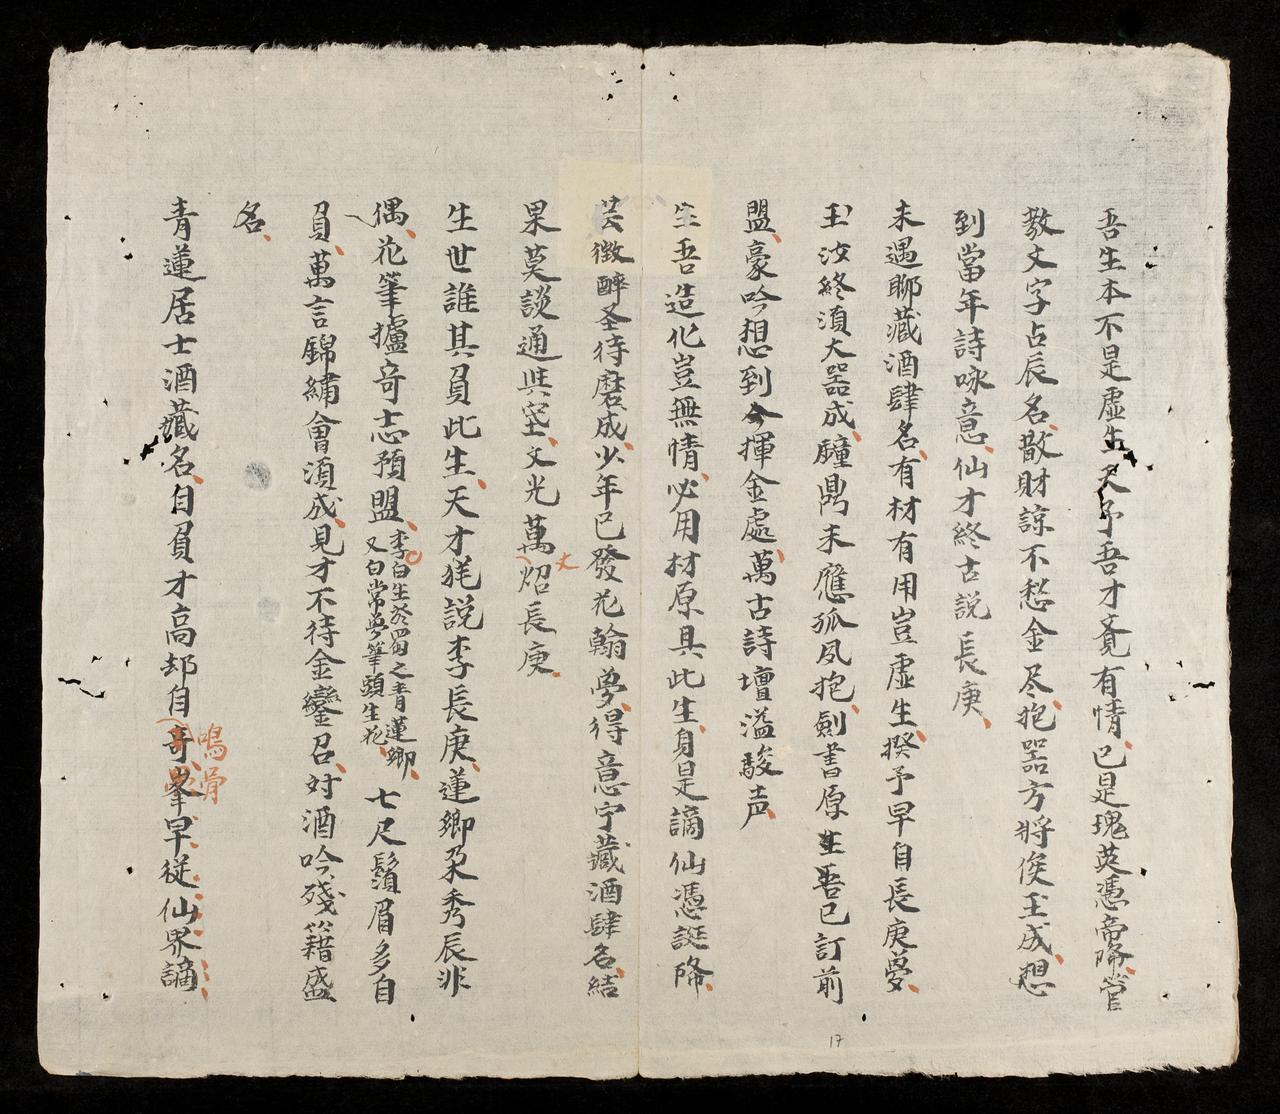 吾生本不是虛生天予吾才竟有情已是瑰英憑帝降管
教文字占辰名散財諒不愁金尽抱器方將俟玉成想
到當年詩咏意仙才終古説長庚
未遇聊藏酒肆名有材有用豈虛生揆予早自長庚夢
玉汝終湏大器成鐘鼎未應孤夙抱劍書原生吾已訂前
盟豪吟想到今揮金處萬古詩壇溢駿声
生吾造化豈無情必用材原具此生身是謫仙憑誕降
芸徴醉圣待磨成少年已發花翰夢得意宁藏酒肆名結
果莫談通與塞文光萬丈炤長庚
生世誰其負此生天才獨説李長庚蓮鄉孕秀辰非
偶花筆攄奇志預盟李白生於蜀之青蓮鄉
又白常夢筆頭生花
七尺鬚眉多自
負萬言錦繡會湏成見才不待金鑾召対酒吟殘籍盛
名
青蓮居士酒藏名自負才高却自奇
鳴骨
早従仙界謫
17